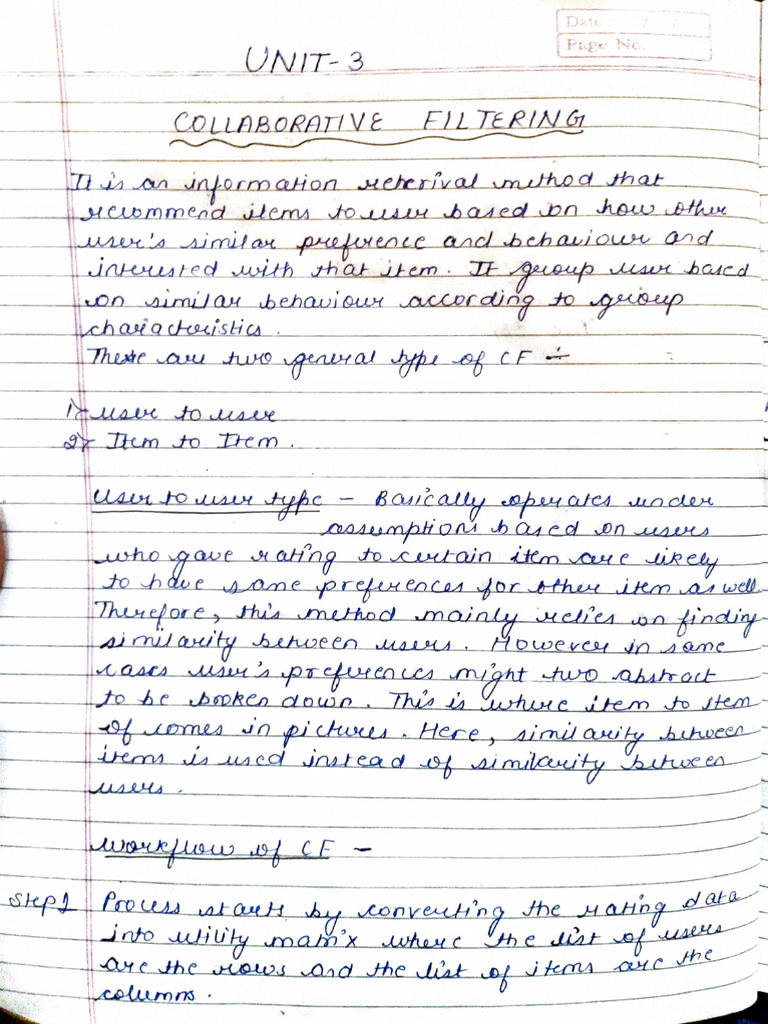 Date : / /
Page No.
UNIT-3
COLLABORATIVE FILTERING
It is an information reterival method that
recommend items to user based on how other
user's similar preference and behaviour and
interested with that item. It group user based
on similar behaviour according to group
characteristics.
These are two general type of CF ÷
1) user to user
2) Item to Item.
User to user type - Basically operates under
assumptions based on users
who gave rating to certain item are likely
to have same preferences for other item as well.
Therefore, this method mainly relies on finding
similarity between users. However in some
cases user's preferences might two abstract
to be broken down. This is where item to item
cf comes in pictures. Here, similarity between
items is used instead of similarity between
users.
Workflow of CF -
Step 1 Process starts by converting the rating data
into utility matrix where the list of users
are the rows and the list of items are the
columns.